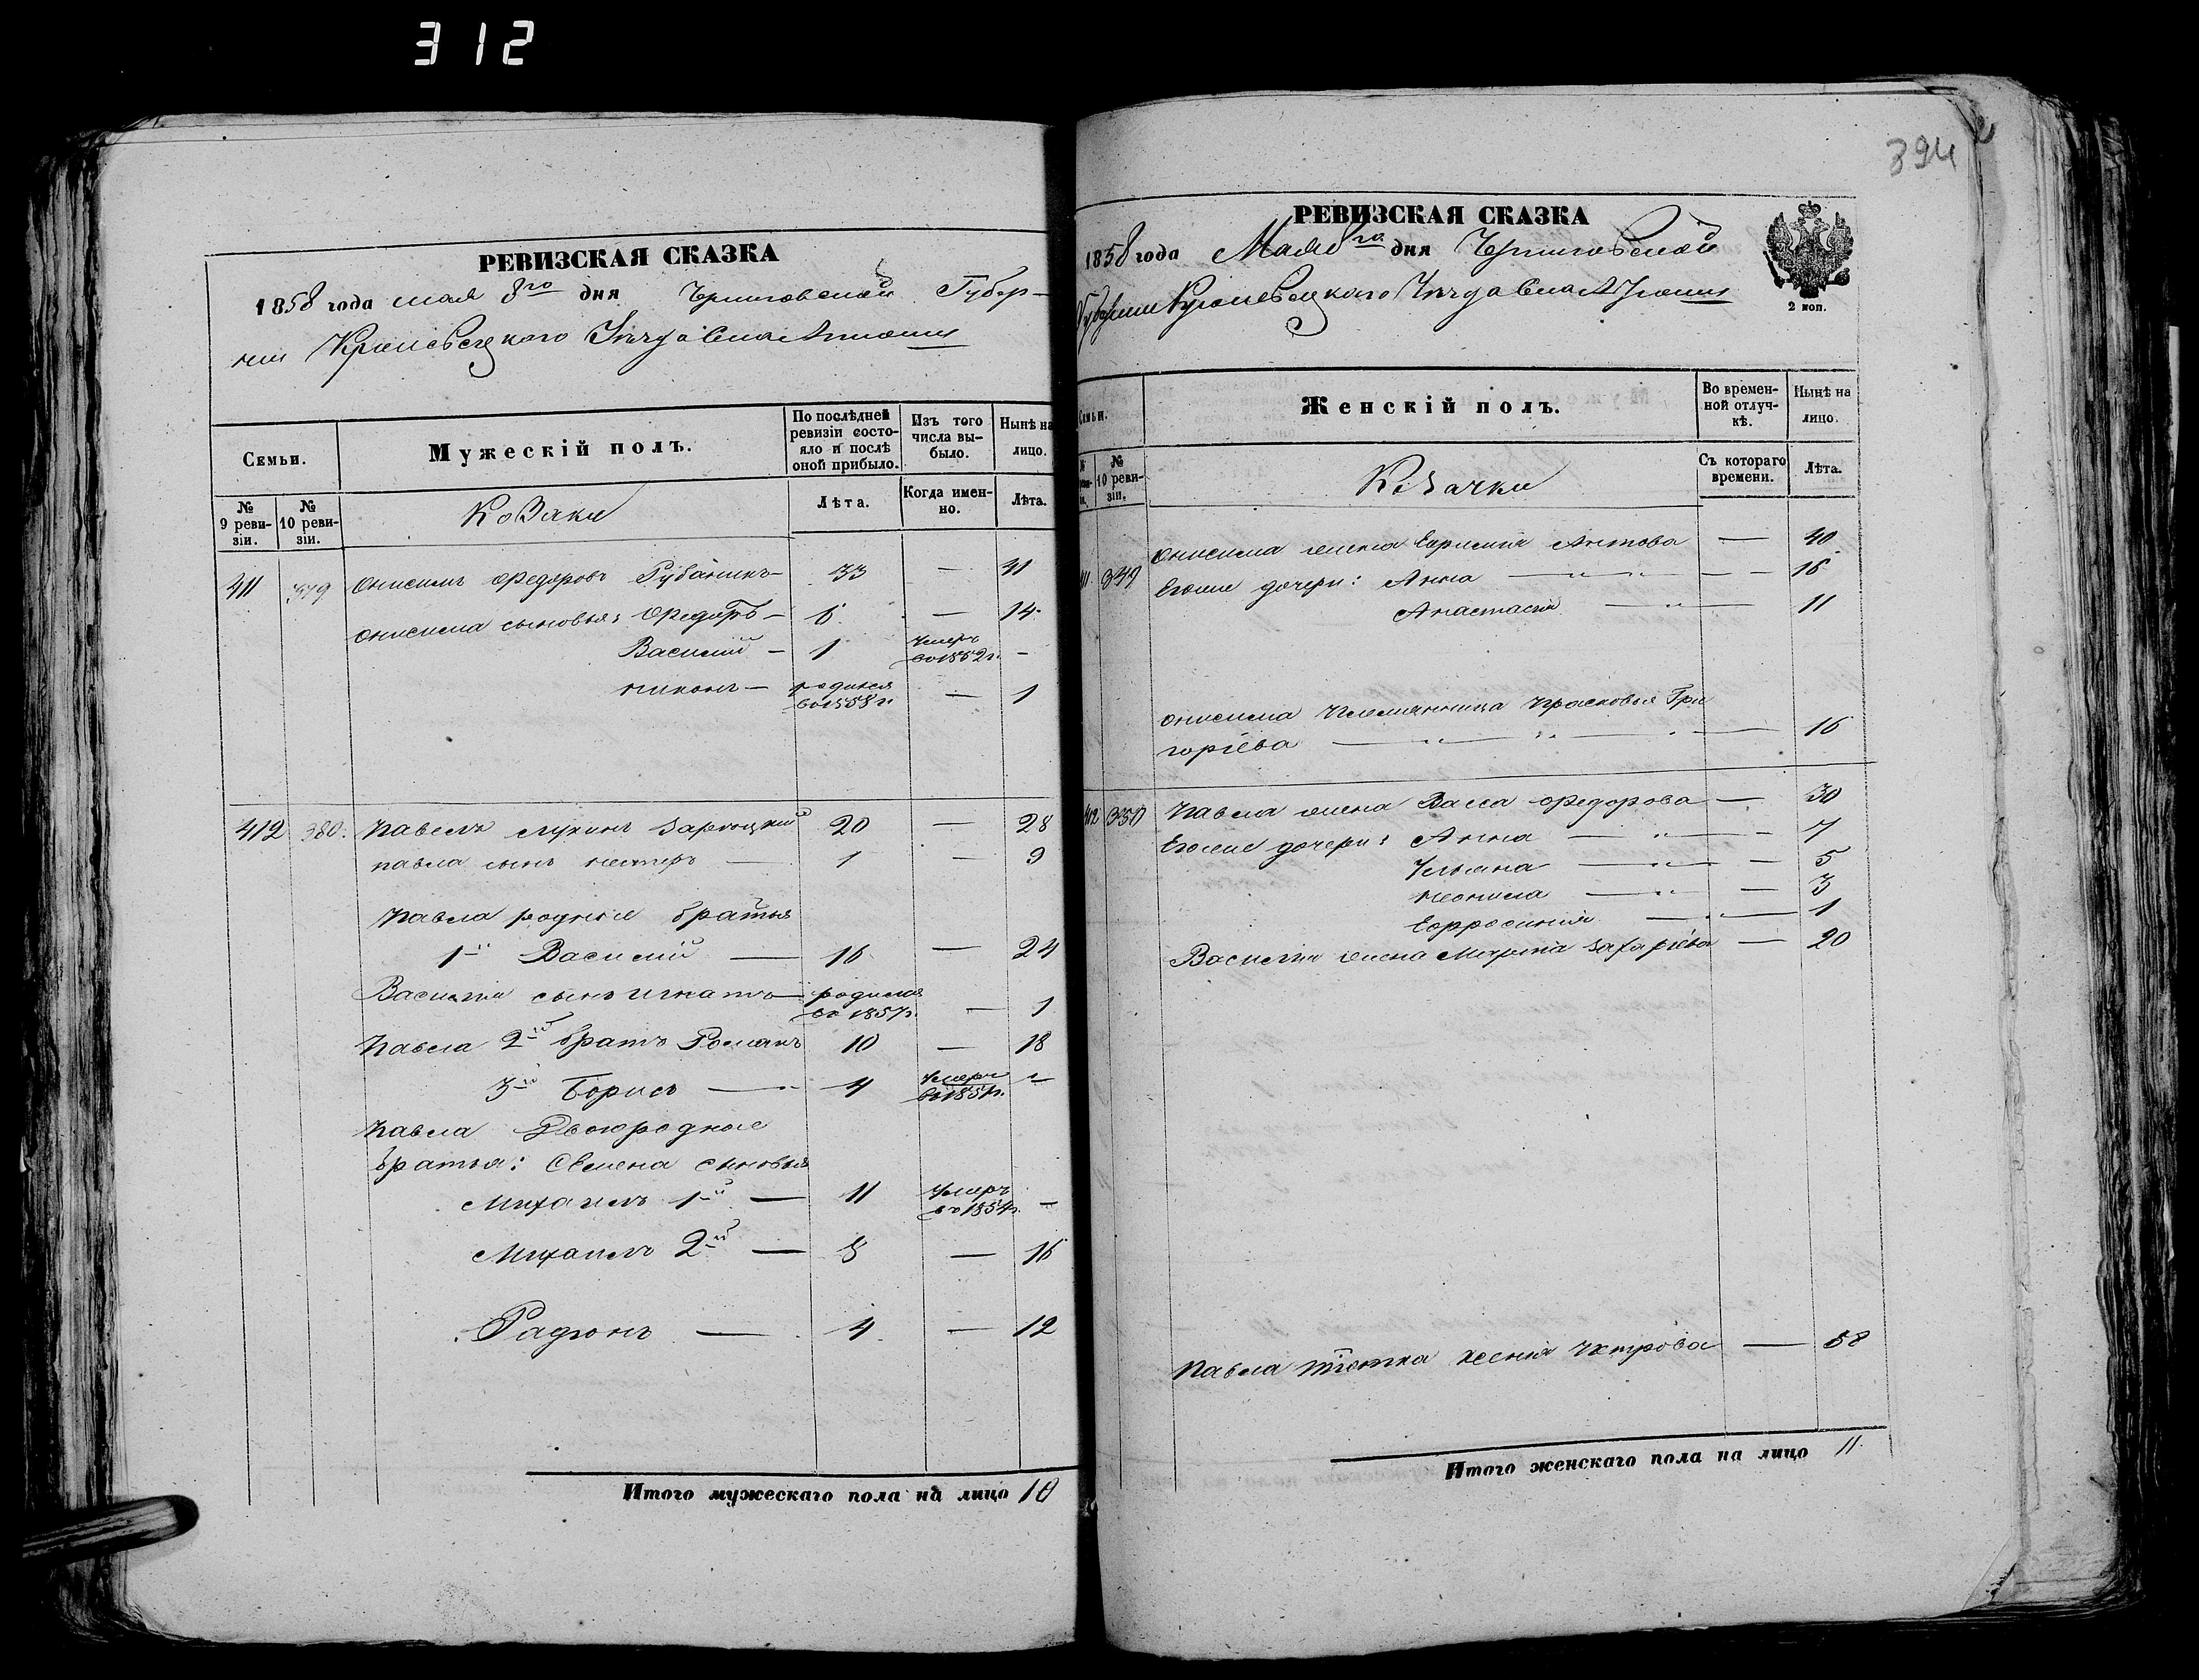 312
394
РЕВИЗСКАЯ СКАЗКА
1858 года мая 8го дня Черниговской Губер-
нии Кролевецкого Уезда
Семьи.
Мужескій полъ.
По послѣдней ревизіи состо-
яло и послѣ оной прибыло.
Изъ того числа вы-
было.
Нынѣ на лицо.
№ 9 реви-
зіи.
№ 10 реви-
зіи.
Козаки
Лѣта.
Когда имен-
но.
Лѣта.
411 379 Онисимъ Федоровъ Рубаникъ 33 — 41
Онисима сыновья: Федоръ — 6 — 14
Василій — 1 Умеръ въ 1852 г. —
Никонъ — родился в 1858 г. — 1
412 380. Павелъ Лукинъ Зарюцкій 20 — 28
Павла сынъ Нестеръ — 1 — 9
Павла родные братья
1й Василій — 16 — 24
Василія сынъ Игнатъ — родился въ 1857 г. — 1
Павла 2й братъ Романъ 10 — 18
3й Борисъ — 4 Умеръ —
Павла Двоюродные
братья: Семена сыновья
Михаилъ 1й — 11 Умеръ въ 1854 г. —
Михаилъ 2й — 8 — 16
Радіонъ — 4 — 12
Итого мужескаго пола на лицо 10
РЕВИЗСКАЯ СКАЗКА
1858 года Мая 8го дня Черниговской
Губернии Кролевецкого Уезда
2 коп.
Семьи.
Женскій полъ.
Во времен-
ной отлуч-
кѣ.
Нынѣ на лицо.
№ 10 реви-
зіи.
Козачки
Съ котораго времени.
Лѣта.
Онисима жена Евфимія — 40
Егоже дочери: Анна — 16
Анастасія — 11
Онисима племянница Прасковья Гри
горіева — 16
412 Павла жена Васса Федорова — 30
Егоже дочери: Анна — 7
Ульяна — 5
Неонила — 3
Ефросинія — 1
Василія жена Марина Захаріева — 20
Павла тіотка Ксенія Петрова — 58
Итого женскаго пола на лицо 11